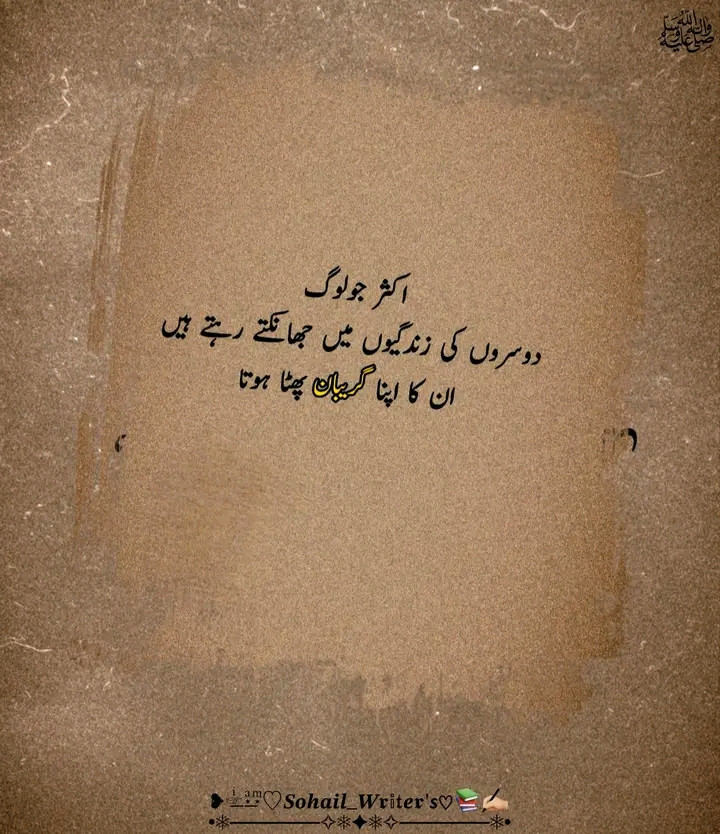 ﷺ
اکثر جولوگ
دوسروں کی زندگیوں میں جھانکتے رہتے ہیں
ان کا اپنا گریبان پھٹا ہوتا
i am♡Sohail_Writer's♡📚✍🏻